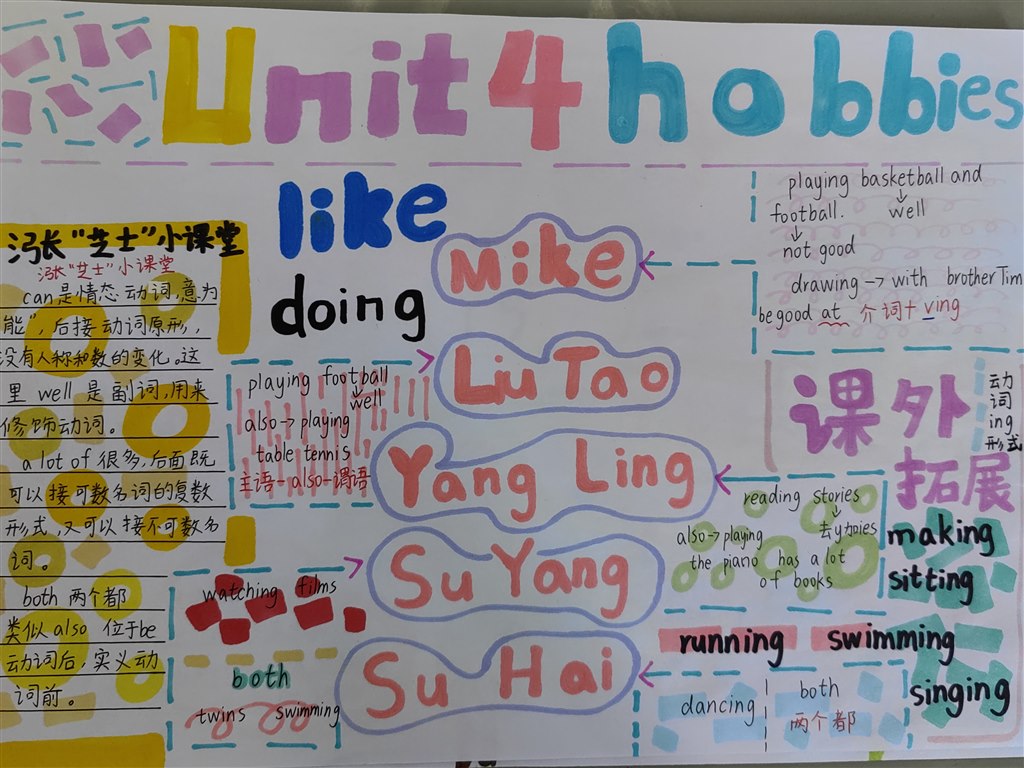 Unit 4 hobbies
like
doing
涨"芝士"小课堂
涨"芝士"小课堂
can是情态动词,意为
能",后接动词原形,
没有人称和数的变化。这
里 well 是副词,用来
修饰动词。
a lot of 很多,后面既
可以接可数名词的复数
形式,又可以接不可数名
词。
both 两个都
类似also 位于be
动词后,实义动
词前。
Mike
playing basketball and
football. well
not good
drawing → with brother Tim
be good at 介词+ving
Liu Tao
playing football
well
also→playing
table tennis
主语-also-谓语
Yang Ling
reading stories
去y加ies
also→playing
the piano has a lot
of books
Su Yang
watching films
both
twins swimming
Su Hai
dancing
both
两个都
课外
拓展
动
词
ing
形式
making
sitting
running swimming
singing